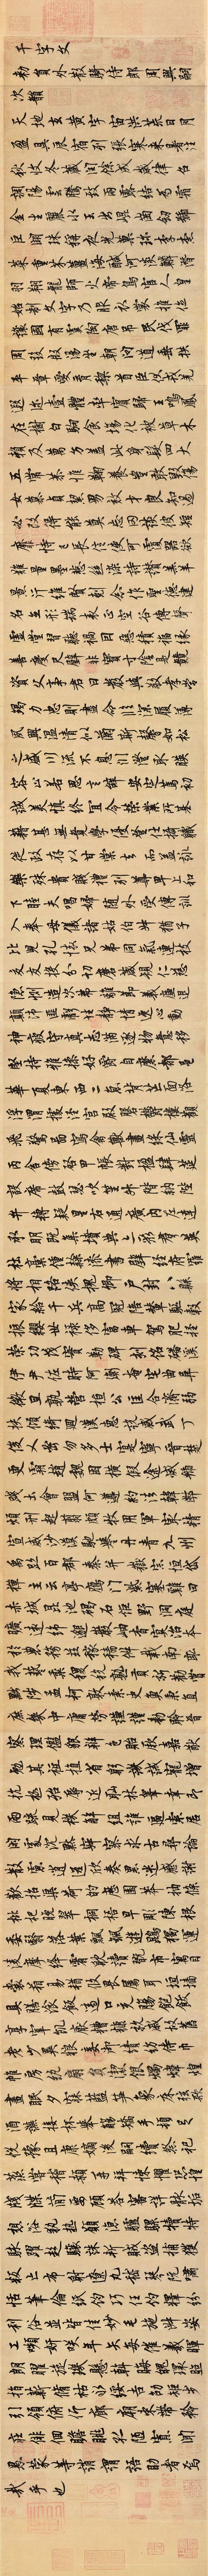 千字文
勅員外散騎侍郎周興嗣
次韻
天地玄黃宇宙洪荒日月
盈昃辰宿列張寒來暑往
秋收冬藏閏餘成歲律召
調陽雲騰致雨露結為霜
金生麗水玉出崑崗劍號
巨闕珠稱夜光菓珎李柰
菜重芥薑海鹹河淡鱗潛
羽翔龍師火帝鳥官人皇
始制文字乃服衣裳推位
讓國有虞陶唐弔民伐罪
周發殷湯坐朝問道垂拱
平章愛育黎首臣伏戎羌
遐邇壹體率賓歸王鳴鳳
在樹白駒食場化被草木
賴及萬方蓋此身髮四大
五常恭惟鞠養豈敢毀傷
女慕貞潔男效才良知過
必改得能莫忘罔談彼短
靡恃己長信使可覆器欲
難量墨悲絲染詩讚羔羊
景行維賢剋念作聖德建
名立形端表正空谷傳聲
虛堂習聽禍因惡積福緣
善慶尺璧非寶寸陰是競
資父事君曰嚴與敬孝當
竭力忠則盡命臨深履薄
夙興溫凊似蘭斯馨如松
之盛川流不息淵澄取暎
容止若思言辭安定篤初
誠美慎終宜令榮業所基
藉甚無竟學優登仕攝職
從政存以甘棠去而益詠
樂殊貴賤禮別尊卑上和
下睦夫唱婦隨外受傅訓
入奉母儀諸姑伯叔猶子
比兒孔懷兄弟同氣連枝
交友投分切磨箴規仁慈
隱惻造次弗離節義廉退
顛沛匪虧性靜情逸心動
神疲守真志滿逐物意移
堅持雅操好爵自縻都邑
華夏東西二京背芒面洛
浮渭據涇宮殿盤鬱樓觀
飛驚圖寫禽獸畫綵仙靈
丙舍傍啟甲帳對楹肆筵
設席鼓瑟吹笙升階納陛
弁轉疑星右通廣內左達
承明既集墳典亦聚群英
杜槁鍾隸漆書壁經府羅
將相路俠槐卿戶封八縣
家給千兵高冠陪輦驅轂
振纓世祿侈富車駕肥輕
策功茂實勒碑刻銘磻溪
伊尹佐時阿衡奄宅曲阜
微旦孰營桓公匡合濟弱
扶傾綺迴漢惠說感武丁
俊乂密勿多士寔寧晉楚
更霸趙魏困橫假途滅虢
踐土會盟何遵約法韓弊
煩刑起翦頗牧用軍最精
宣威沙漠馳譽丹青九州
禹跡百郡秦并嶽宗恒岱
禪主云亭鴈門紫塞雞田
赤城昆池碣石鉅野洞庭
曠遠綿邈巖岫杳冥治本
於農務茲稼穡俶載南畝
我藝黍稷稅熟貢新勸賞
黜陟孟軻敦素史魚秉直
庶幾中庸勞謙謹敕聆音
察理鑑貌辨色貽厥嘉猷
勉其祗植省躬譏誡寵增
抗極殆辱近恥林皋幸即
兩疏見機解組誰逼索居
閑處沉默寂寥求古尋論
散慮逍遙欣奏累遣慼謝
歡招渠荷的歷園莽抽條
枇杷晚翠梧桐早凋陳根
委翳落葉飄颻遊鵾獨運
凌摩絳霄耽讀翫市寓目
囊箱易輶攸畏屬耳垣牆
具膳飡飯適口充腸飽飫
烹宰飢厭糟糠親戚故舊
老少異糧妾御績紡侍巾
帷房紈扇圓潔銀燭煒煌
晝眠夕寐藍笋象床弦歌
酒讌接杯舉觴矯手頓足
悅豫且康嫡後嗣續祭祀
蒸嘗稽顙再拜悚懼恐惶
牋牒簡要顧答審詳骸垢
想浴執熱願涼驢騾犢特
駭躍超驤誅斬賊盜捕獲
叛亡布射遼丸嵇琴阮嘯
恬筆倫紙鈞巧任釣釋紛
利俗並皆佳妙毛施淑姿
工顰妍笑年矢每催羲暉
朗曜旋璣懸斡晦魄環照
指薪修祜永綏吉劭矩步
引領俯仰廊廟束帶矜
莊徘徊瞻眺孤陋寡聞
愚蒙等誚謂語助者焉
哉乎也